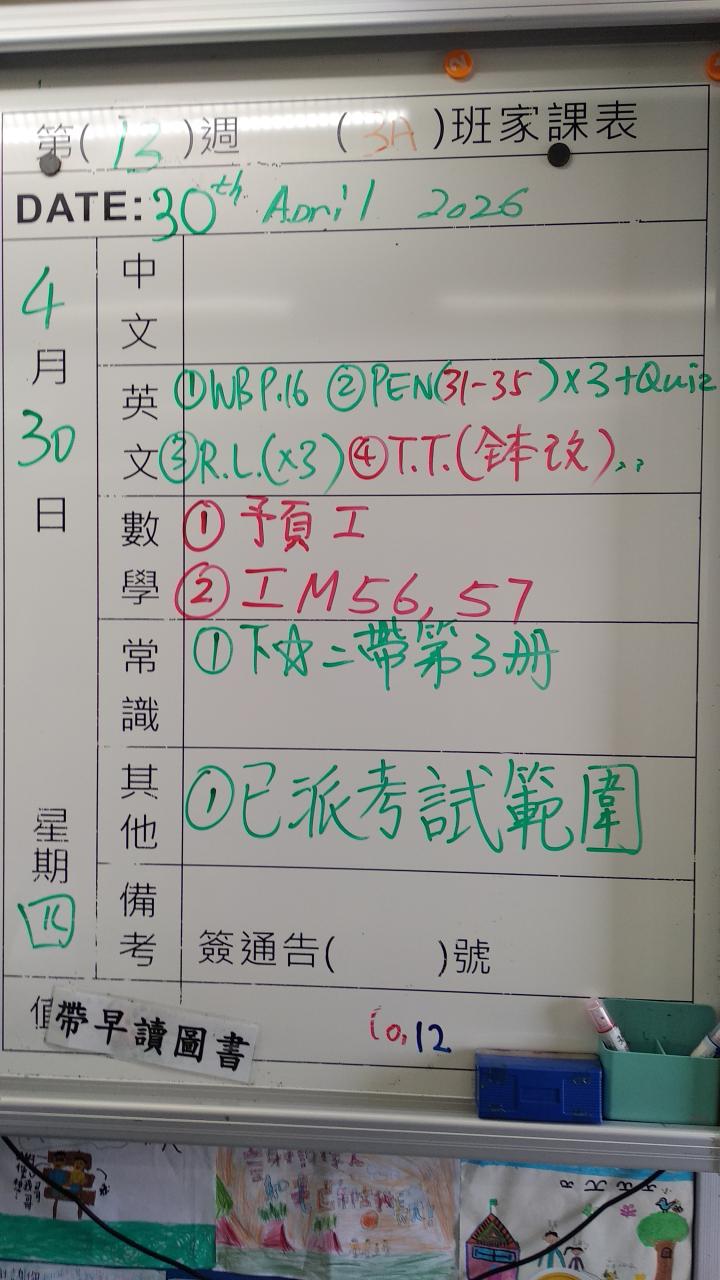 第(13)週 (3A)班家課表
DATE: 30th April 2026
4月30日
星期四
中文
英文
①WB P.16 ②PEN(31-35)×3+Quiz
③R.L.(×3) ④T.T.(全本改)
數學
①預工
②工M56, 57
常識
①下☆二帶第3册
其他
①已派考試範圍
備考
簽通告( )號
值
帶早讀圖書
10,12